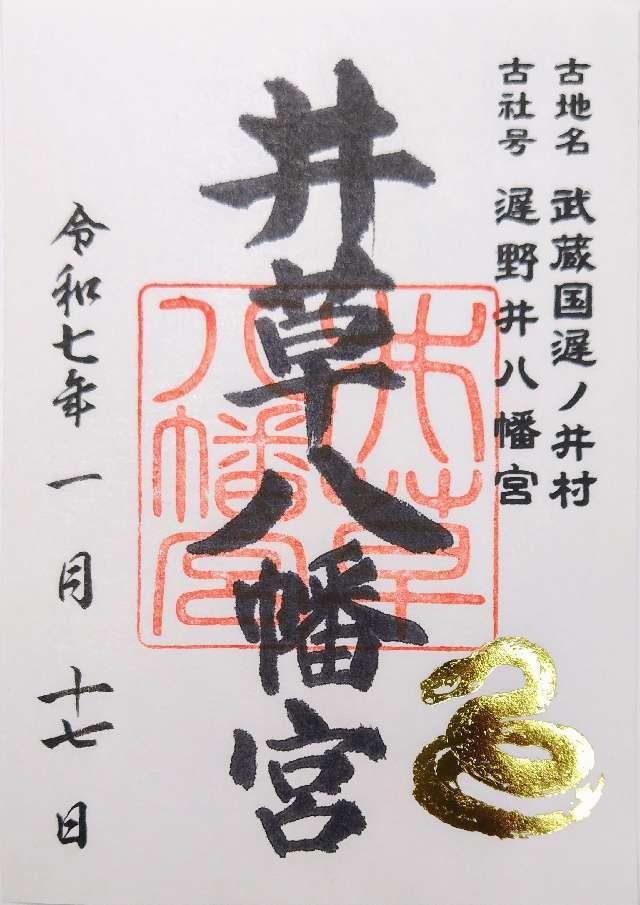 古地名 武蔵国遅ノ井村
古社号 遅野井八幡宮
井草八幡宮
井草八幡宮
令和七年 一月 十七日